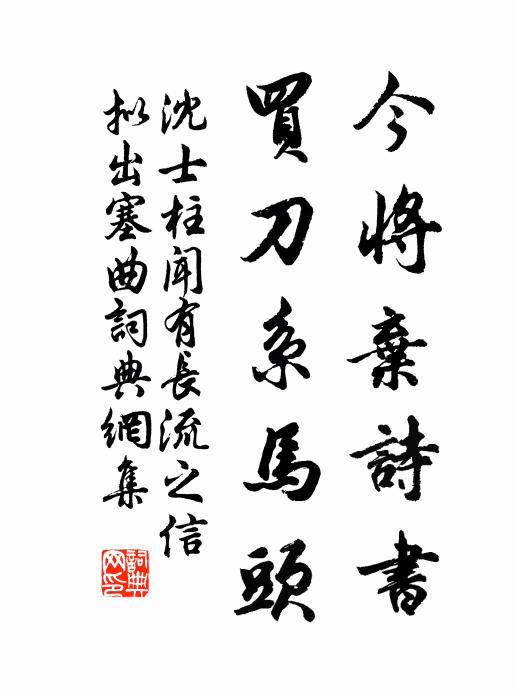 今將棄詩書
買刀系馬頭
沈士柱聞有長流之信
擬出塞曲詞典網集
詞典網印